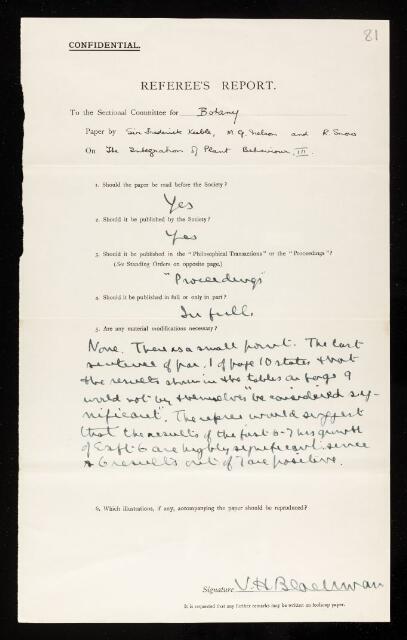 81
CONFIDENTIAL.
REFEREE'S REPORT.
To the Sectional Committee for Botany
Paper by Sir Frederick Keeble, M. G. Nelson and R. Snow
On The Integration of Plant Behaviour. III.
1. Should the paper be read before the Society?
Yes
2. Should it be published by the Society?
Yes
3. Should it be published in the "Philosophical Transactions" or the "Proceedings"?
(See Standing Orders on opposite page.)
"Proceedings"
4. Should it be published in full or only in part?
In full.
5. Are any material modifications necessary?
None. There is a small point. The last
sentence of par. 1 of page 10 states that
the results shown in the tables on page 9
would not "by themselves" be considered sig-
nificant. The referee would suggest
that the results of the first 6-7 hrs growth
of Expt. 6 are highly significant since
6 results out of 7 are positive.
6. Which illustrations, if any, accompanying the paper should be reproduced?
Signature V. H. Blackman
It is requested that any further remarks may be written on foolscap paper.